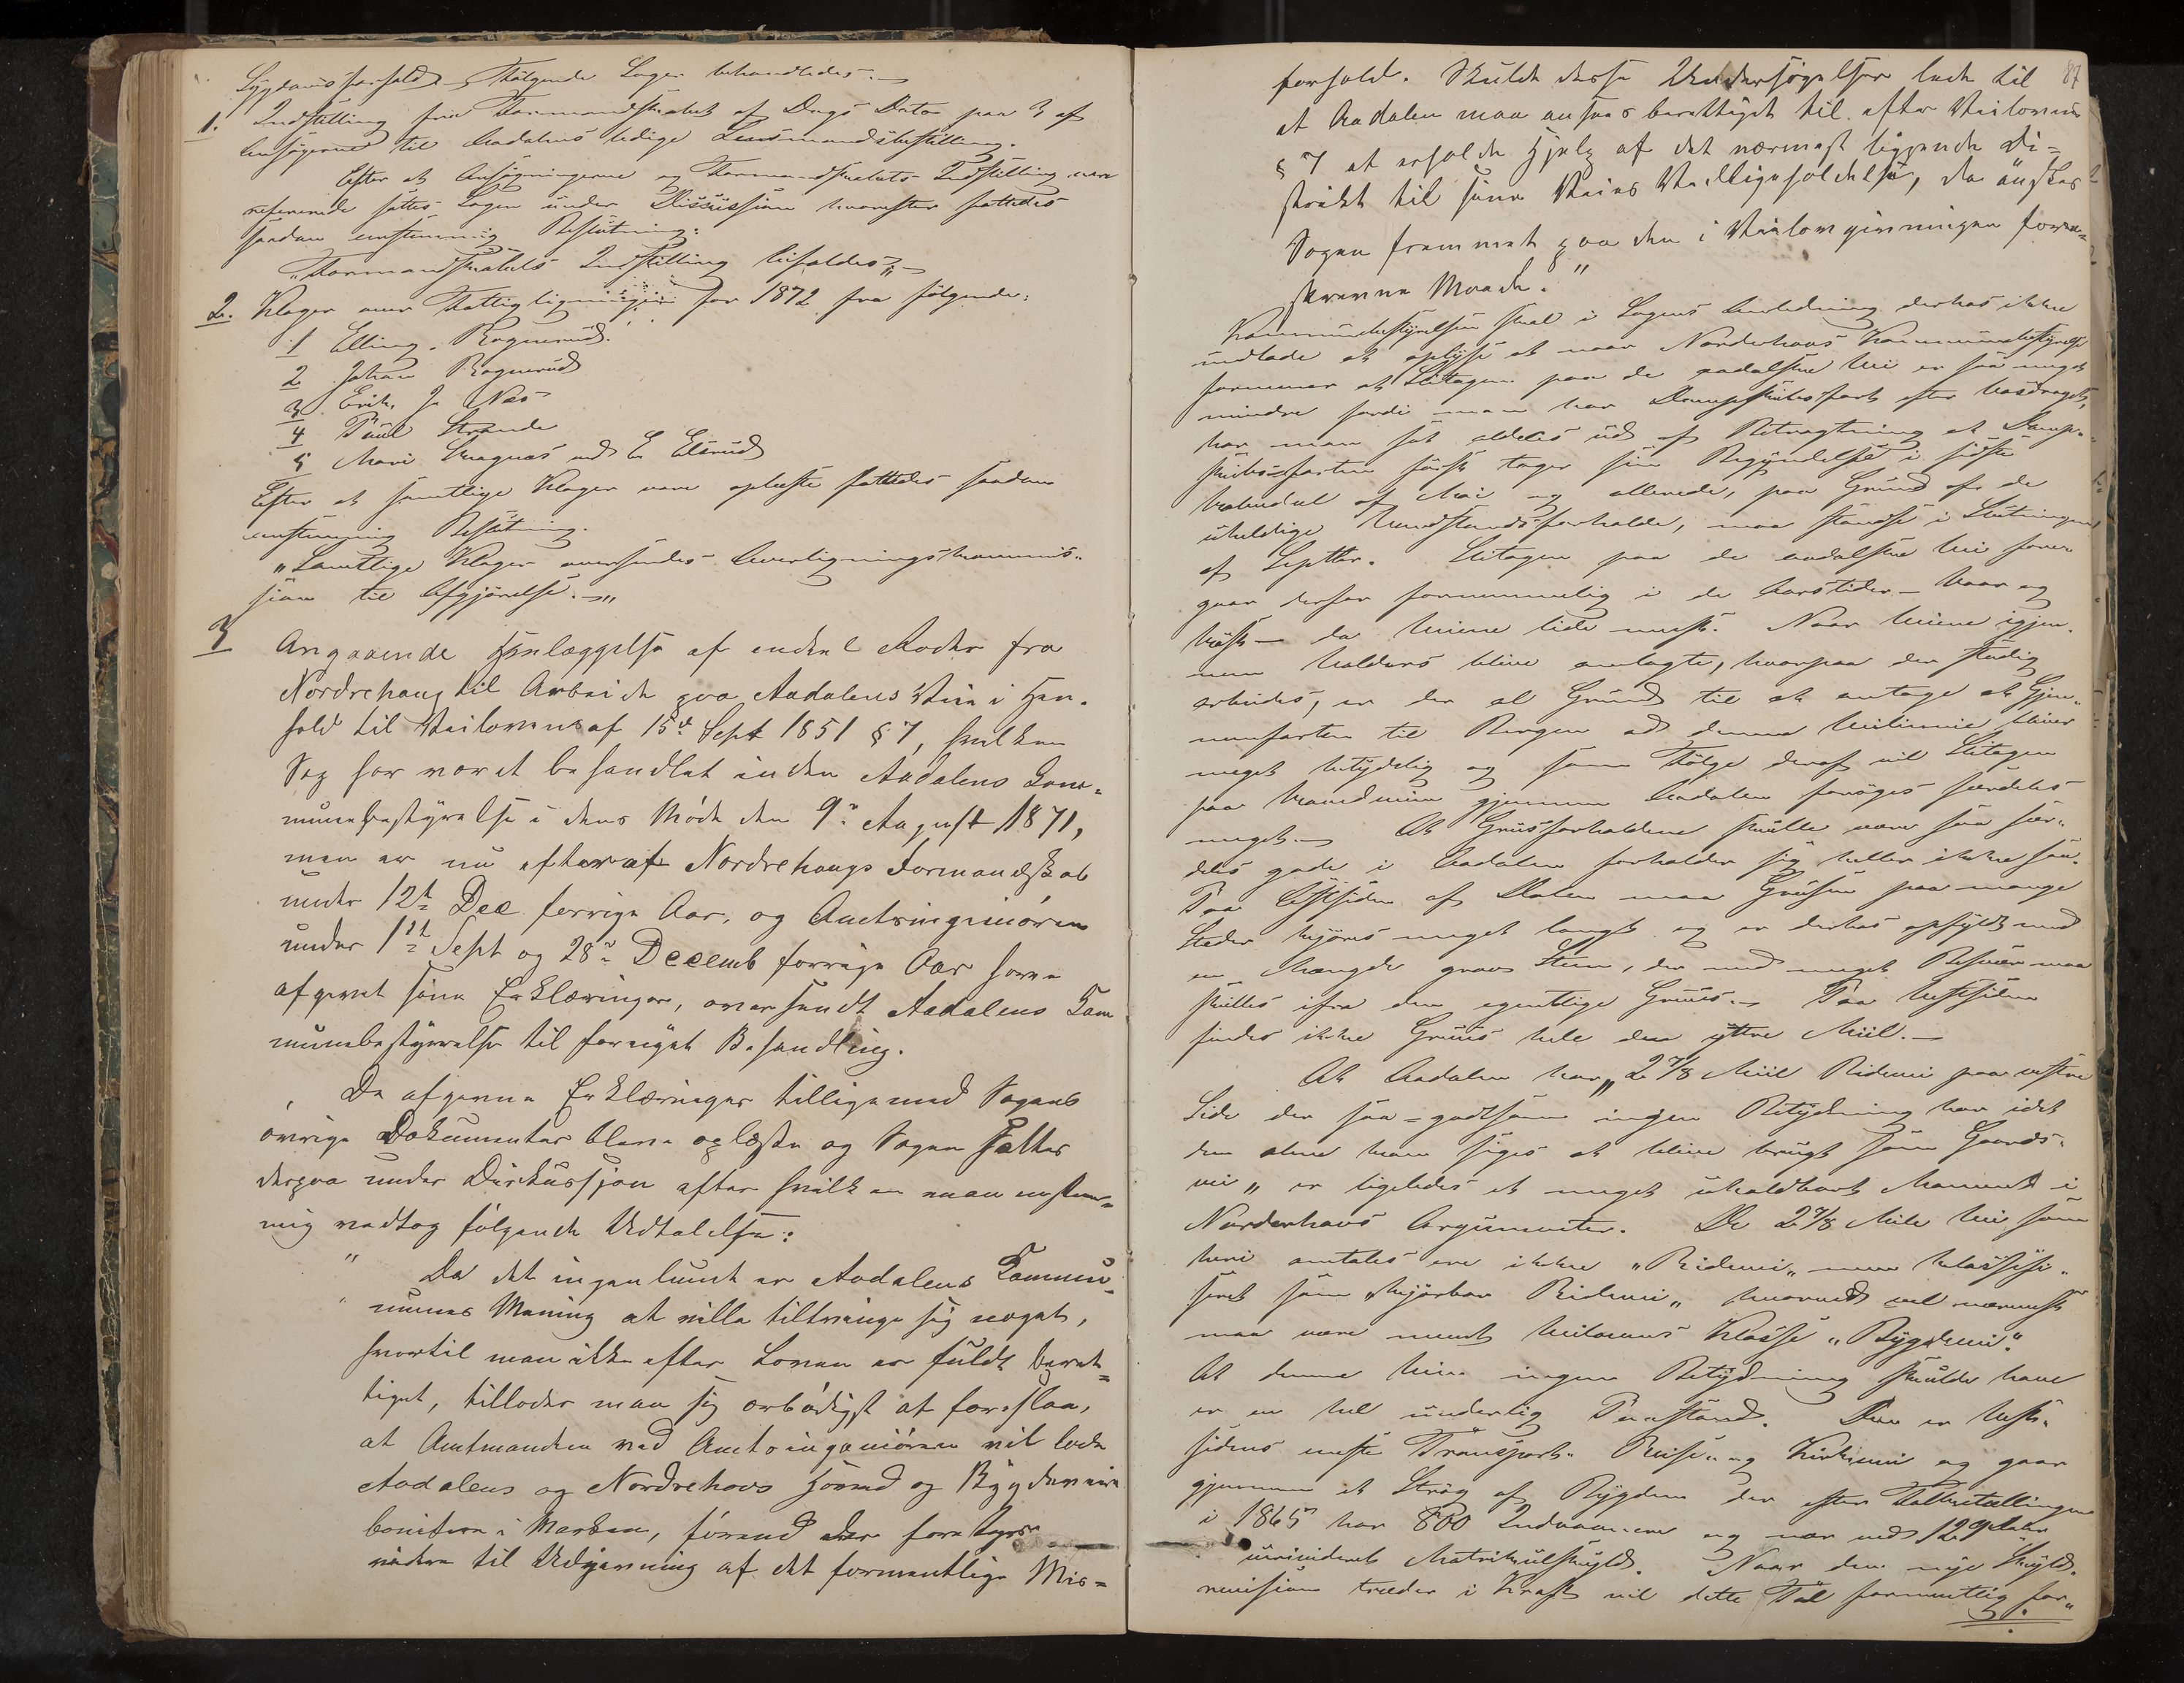 Sygdomsforfald. Følgende Sager behandledes.
1. Indstilling fra Formandskabet af Dags Dato paa 3 af
Ansøgerne til Aadalens ledige Lensmandsbestilling.
Efter at Ansøgningerne og Formandskabets Indstilling vare
refererede sattes Sagen under Discussion hvorefter fattedes
saadan enstemmig Beslutning:
"Formandskabets Indstilling bifaldes".
2. Klager over Fattigligningen for 1872 fra følgende:
1 Elling Rognerud.
2 Johan Rognerud
3 Erik J. Næs
4 Paul Strande
5 Mari Skagnæs ved E Elsrud
Efter at samtlige Klager vare oplæste fattedes saadan
enstemmig Beslutning.
"Samtlige Klager oversendes Overligningskommis-
sion til Afgjørelse."
3 Angaaende Henlæggelse af endeel Roder fra
Nordrehoug til Arbeide paa Aadalens Vei i Hen-
hold til Veilovens af 15de Sept 1851 § 7, hvilken
Sag har været behandlet inden Aadalens Kom-
munebestyrelse i dens Møde den 9de August 1871,
men er nu efter at Nordrehougs Formandskab
under 12te Dec forrige Aar, og Amtsingeniøren
under 11te Sept og 28de Decemb forrige Aar have
afgivet sine Erklæringer, oversendt Aadalens Kom
munebestyrelse til fornyet Behandling.
De afgivne Erklæringer tilligemed Sagens
øvrige Dokumenter bleve oplæste og Sagen sattes
derpaa under Diskussjon efter hvilken man enstem-
mig vedtog følgende Udtalelse:
" Da det ingenlunde er Aadalens Kommu-
nunes Mening at ville tiltvinge sig noget,
hvortil man ikke efter Loven er fuldt beret-
tiget, tillader man sig ærbødigst at foreslaa,
at Amtmanden ved Amtsingeniøren vil lade
Aadalens og Nordrehovs Hoved og Bygdeveie
bonitere i Marken, førend der foretages
videre til Udjævning af det formentlige Mis-
87
forhold. Skulde disse Undersøgelser lede til
at Aadalen maa ansees berettiget til efter Veilovens
§ 7 at erholde Hjelp af det nærmest liggende Di-
strikt til sine Veies Vedligeholdelse, da ønskes
Sagen fremmet paa den i Veilovgivningen fore-
skrevne Maade."
Kommunebestyrelsen skal i Sagens Anledning derhos ikke
undlade at oplyse at naar Norderhovs Kommunebestyrelse
formener at Slitagen paa de aadalske Veie er saa meget
mindre fordi man har Dampskibsfart efter Vasdraget,
har man sat aldeles ud af Betragtning at Damp-
skibsfarten først tager sin Begyndelse i sidste
Halvdeel af Mai og allerede, paa Grund af de
uheldige Vandstandsforholde, maa standse i Slutningen
af Septbr. Slitagen paa de aadalske Veie fore-
gaar derfor fornemmelig i de Aarstider – Vaar og
Høst – da Veiene lide mest. Naar Veiene igjen-
nem Valders blive omlagte, hvorpaa der stadig
arbeides, er der al Grund til at antage at Gjen-
nemfarten til Bergen ad denne Veilinie bliver
meget betydelig og som Følge deraf vil Slitagen
paa Hovedveien gjennem Aadalen forøges særdeles
meget. At Gruusforholdene skulle være saa sær-
deles gode i Aadalen forholder sig heller ikke saa.
Paa Østsiden af Dalen maa Grusen paa mange
Steder kjøres meget langt og er derhos opfyldt med
en Mængde grov Steen, der med meget Besvær maa
skilles ifra den egentlige Gruus. Paa Vestsiden
findes ikke Gruus hele den ytre Miil.
At Aadalen har "2 7/8 Miil Rideveie paa vestre
Side der saa-godtsom ingen Betydning har idet
den alene kan siges at blive brugt som Gaards-
vei" er ligeledes et meget uholdbart Moment i
Norderhovs Argumenter. De 2 7/8 Mile Vei som
heri omtales ere ikke "Rideveie" men klassifi-
seret som "kjørbar Rideveie" hvorved vel nærmest
maa være meent Veilovens Klasse "Bygdevei".
At denne Vei ingen Betydning skulde have
er en hel underlig Paastand. Den er Vest-
sidens meste Transport- Reise- og Kirkevei og gaar
gjennem et Strøg af Bygden der efter Folketællingen
i 1865 har 800 Indvaanere og nær ved 129 Daler
urevideret Matrikulskyld. Naar den nye Skyld-
revision træder i Kraft vil dette Tal formentlig for-